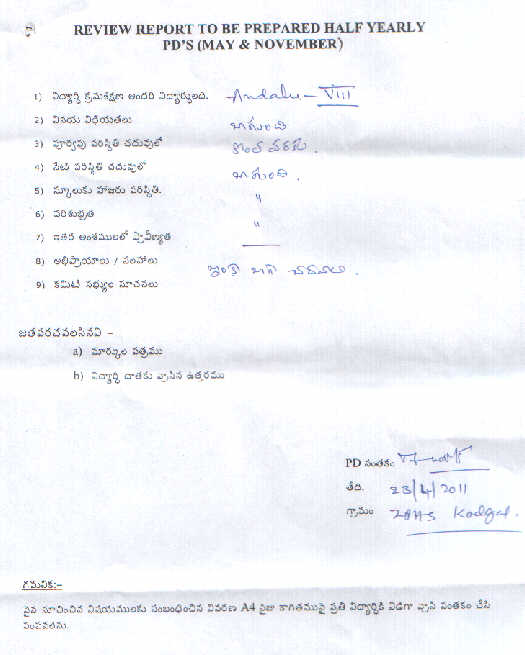 REVIEW REPORT TO BE PREPARED HALF YEARLY
PD'S (MAY & NOVEMBER)
1) విద్యార్థి క్రమశిక్షణ అందరి విద్యార్థులది. Andalu - VIII
2) వినయ విధేయతలు బాగుంది
3) పూర్వపు పరిస్థితి చదువులో
4) నేటి పరిస్థితి చదువులో బాగుంది.
5) స్కూలుకు హాజరు పరిస్థితి. "
6) పరిశుభ్రత "
7) ఇతర అంశములలో ప్రావీణ్యత
8) అభిప్రాయాలు / సలహాలు ఇంకా బాగా చదవాలి.
9) కమిటీ సభ్యుల సూచనలు
జతపరచవలసినవి –
a) మార్కుల పత్రము
b) విద్యార్థి దాతకు వ్రాసిన ఉత్తరము
PD సంతకం
తేది. 23/4/2011
గ్రామం ZPHS Kodgal.
గమనిక:–
పైన సూచించిన విషయములకు సంబంధించిన వివరణ A4 సైజు కాగితముపై ప్రతి విద్యార్థికి విడిగా వ్రాసి సంతకం చేసి
పంపవలెను.